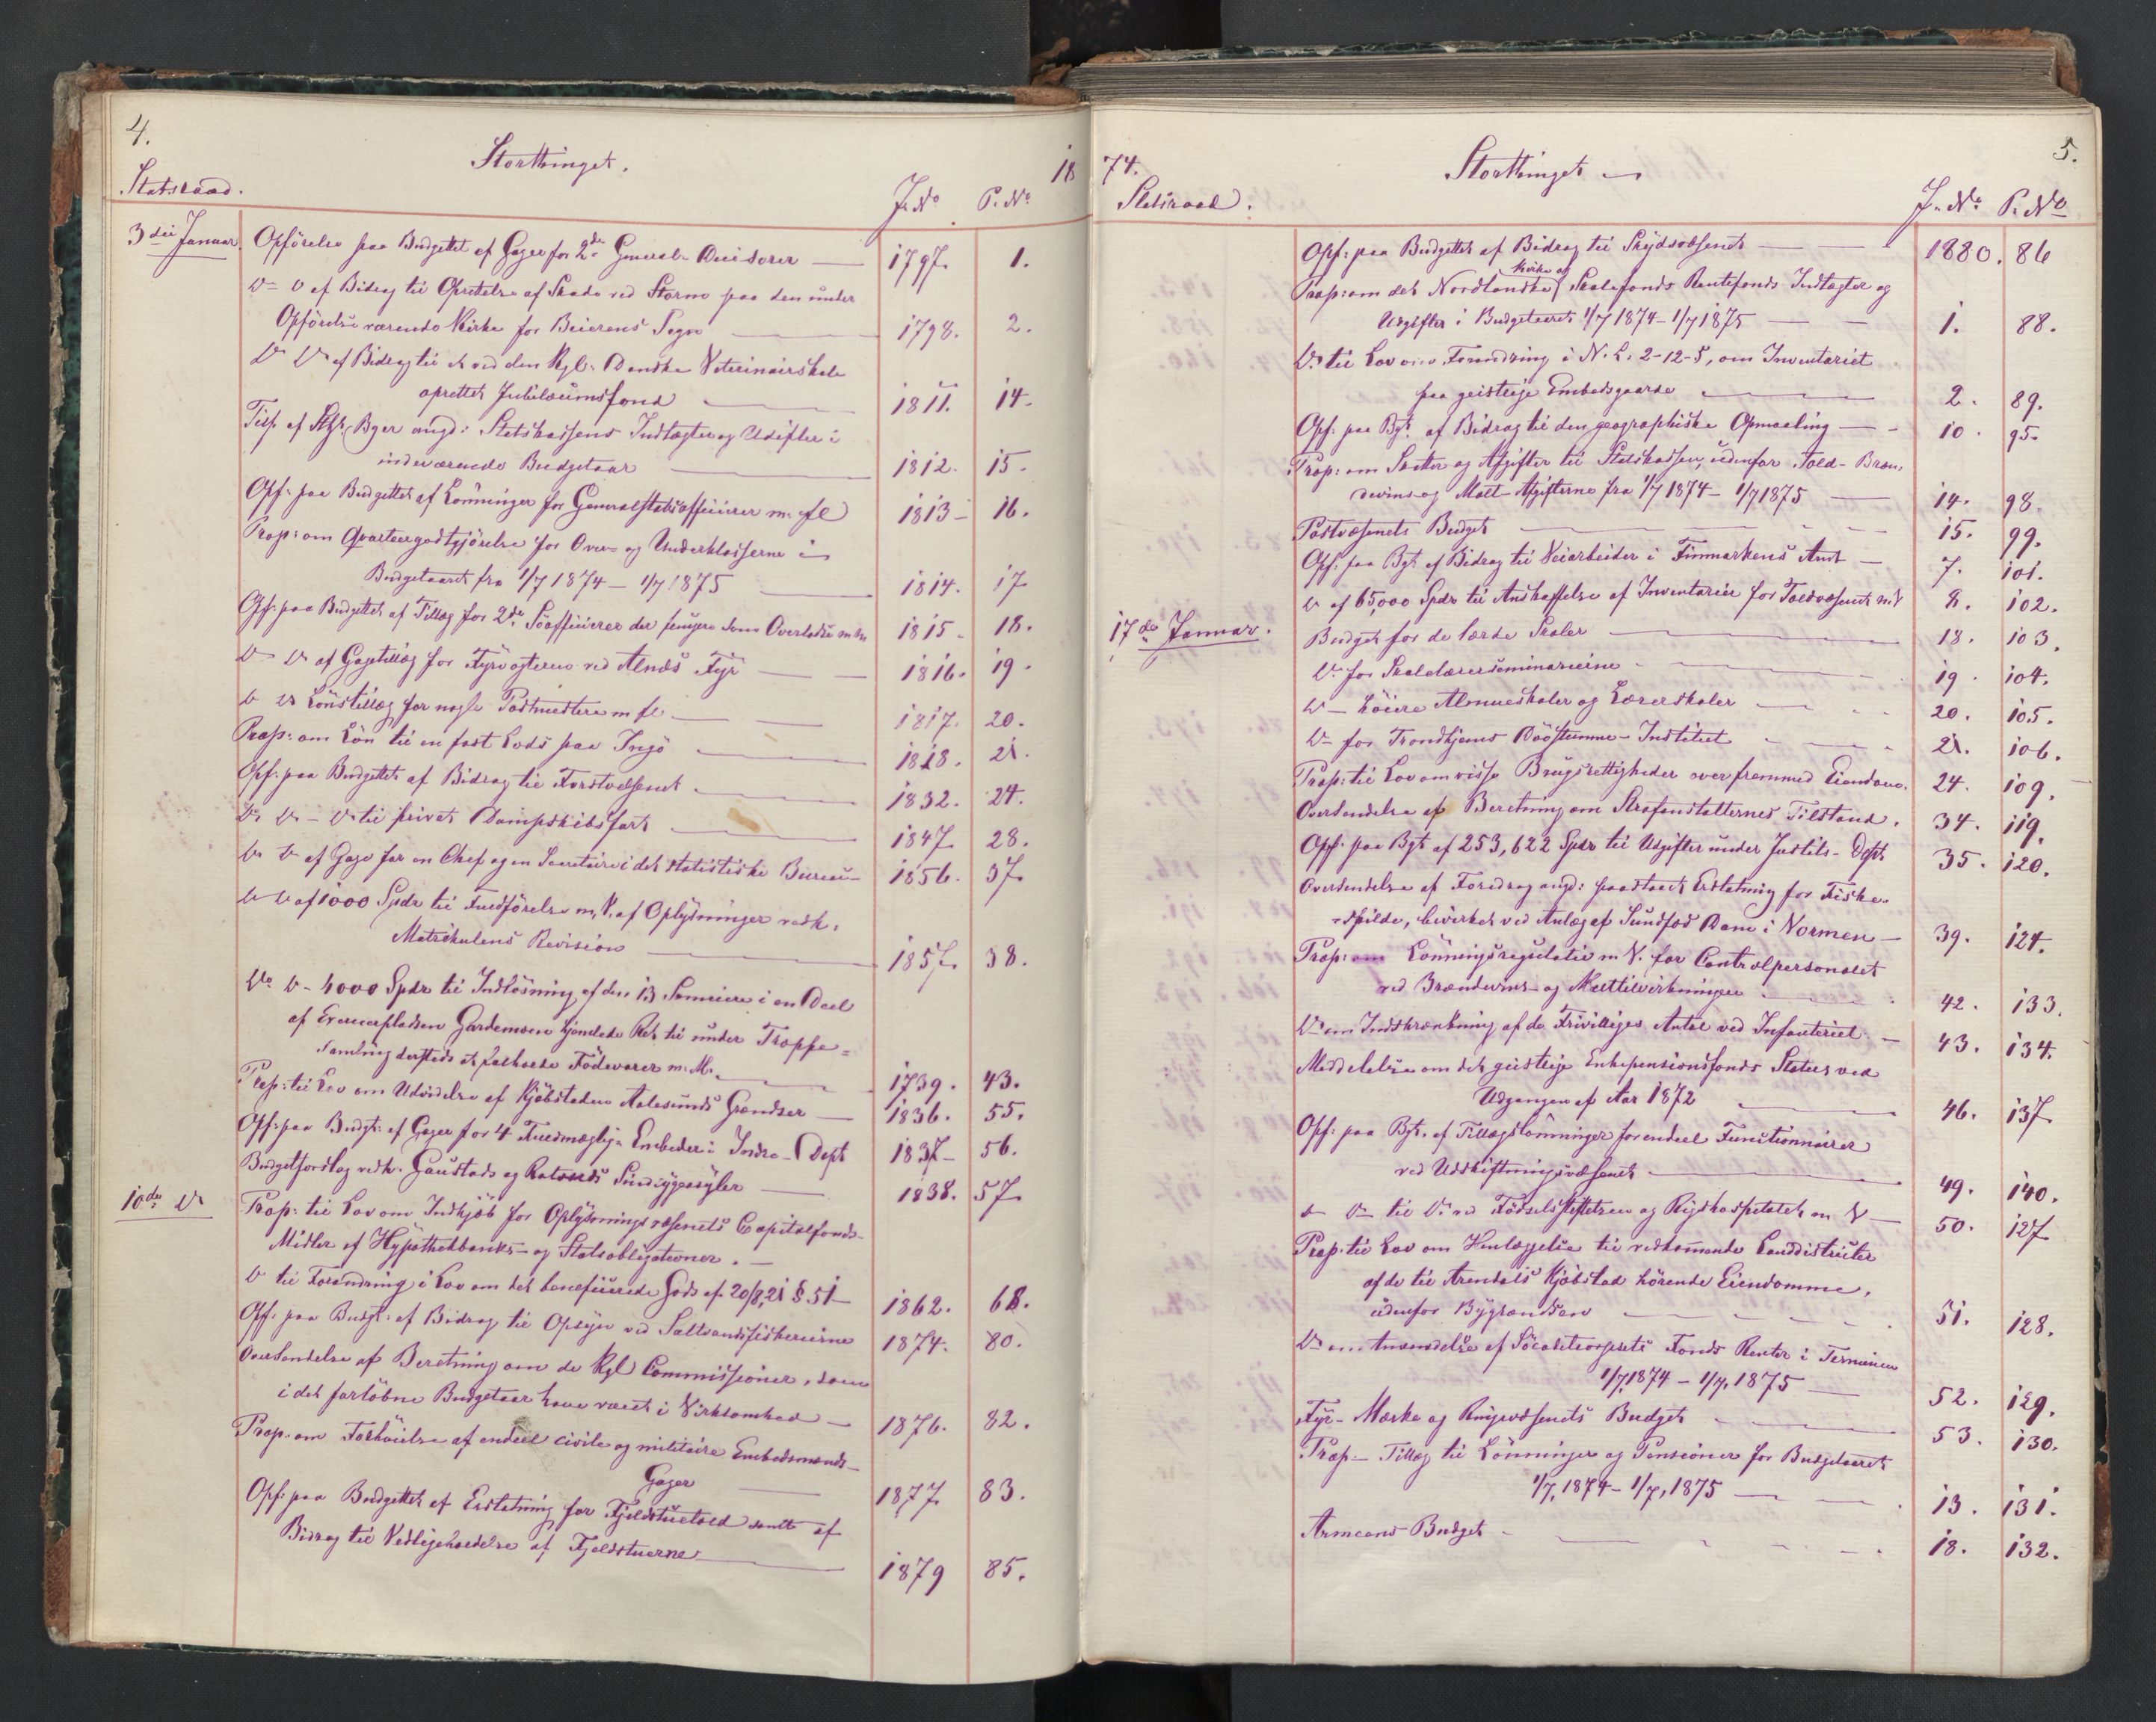 4.
Storthinget.
18
Statsraad.
J. No
P. No
3die Januar.
Opförelse paa Budgettet af Gager for 2de General- Revisorer — 1797. 1.
Do D af Bidrag til Oprettelse af Skade ved Storm paa den under
Opförelse værende Kirke for Beierens Sogn — 1798. 2.
Do Do af Bidrag til et ved den Kgl. Danske Veterinairskole
oprettet Jubilæumsfond — 1811. 14.
angd: Statskassens Indtægter og Udgifter i
indeværende Budgetaar — 1812. 15.
Opf: paa Budgettet af Lönninger for Generalstabsofficierer m. fl 1813 — 16.
Prop: om Qvarteergodtgjörelse for Over- og Underklasserne i
Budgetaaret fra 1/7 1874 — 1/7 1875 — 1814. 17
Opf: paa Budgettet af Tillæg for 2de Söofficierer der fungere som Overlodse m.m 1815. 18.
D D af Gagetillæg for Fyrvogteren ved Alnæs Fyr — 1816. 19.
D D Lönstillæg for nogle Postmestere m fl — 1817. 20.
Prop: om Lön til en fast Lods paa Ingö — 1818. 21.
Opf: paa Budgettet af Bidrag til Forstvæsenet — 1832. 24.
Do Do — Do til privat Dampskibsfart — 1847 28.
Do D af Gage for en Chef og en Secretair i det statistiske Bureau — 1856. 37
D D af 1000 Spdr til Fuldförelse m. V. af Oplysninger vedk.
Matrikulens Revision — 1857. 38.
Do D — 4000 Spdr til Indlösning af den 13 Lomeiere i en Deel
af Exercerpladsen Gardemoen hjemlede Ret til under Troppe=
samling dersteds at falholde Födevarer m. M. — 1739. 43.
Prop: til Lov om Udvidelse af Kjöbstaden Aalesunds Grændser — 1836. 55.
Opf: paa Budgt: af Gager for 4 Fuldmægtig- Embeder i Indre- Dept 1837 — 56.
Budgetforslag vedk. Gaustads og Rotvolds Sindsygeasyler — 1838. 57
10de D
Prop: til Lov om Indkjöb for Oplysningsvæsenets Capitalfonds-
Midler af Hypothekbanks- og Statsobligationer. —
D til Forandring i Lov om det beneficerede Gods af 20/8,21 § 51 — 1862. 68.
Opf. paa Budgt: af Bidrag til Opsyn ved Saltvandsfiskerierne 1874. 80.
Oversendelse af Beretning om de Kgl Commissioner, som
i det forlöbne Budgetaar have været i Virksomhed — 1876. 82.
Prop. om Forhöielse af endeel civile og militaire Embedsmænds-
Gager — 1877 83.
Opf: paa Budgettet af Erstatning for Fjeldstuetold samt af
Bidrag til Vedligeholdelse af Fjeldstuerne — 1879 85.
74.
Storthinget
5.
Statsraad.
J. No
P. No
Opf: paa Budgettet af Bidrag til Skydsvæsenet — 1880. 86
Kirke og
Prop: om det Nordlandske Skolefonds Rentefonds Indtægter og
Udgifter i Budgetaaret 1/7 1874 — 1/7 1875 — 1. 88.
Do til Lov om Forandring i N. L. 2-12-5, om Inventariet
paa geistlige Embedsgaarde — 2. 89.
Opf: paa Bgt. af Bidrag til den geographiske Opmaaling — 10. 95.
Prop: om Skatter og Afgifter til Statskassen, udenfor Told- Bræn-
deviins- og Malt- Afgifterne fra 1/7 1874 — 1/7 1875 — 14. 98.
Postvæsenets Budget — 15. 99.
Opf. paa Bgt af Bidrag til Veiarbeider i Finmarkens Amt — 7. 101.
D af 65,000 Spdr til Anskaffelse af Inventarier for Toldvæsenet m.V 8. 102.
17de Januar.
Budget for de lærde Skoler — 18. 103.
D. for Skolelærerseminarierne — 19. 104.
D — höiere Almueskoler og Lærerskoler — 20. 105.
D — for Trondhjems Dövstumme- Institut — 21. 106.
Prop: til Lov om visse Brugsrettigheder over fremmed Eiendom. 24. 109.
Oversendelse af Beretning om Strafanstalternes Tilstand. 34. 119.
Opf. paa Bgt af 253,622 Spdr til Udgifter under Justits- Dept 35. 120.
Oversendelse af Foredrag angd: paastaaet Erstatning for Fiske-
spilde, bevirket ved Anlæg af Sundfos Dam i Vormen — 39. 124.
Prop: om Lönningsregulativ m V. for Controlpersonalet
ved Brændeviins- og Malttilvirkningen — 42. 133.
Do om Indskrænkning af de Frivilliges Antal ved Infanteriet — 43. 134.
Meddelelse om det geistlige Enkepensionsfonds Status ved
Udgangen af Aar 1872 — 46. 137
Opf: paa Bgt. af Tillægslönninger for endeel Functionairer
ved Udskiftningsvæsenet — 49. 140.
D Do til Do ved Födselsstiftelsen og Rigshospitalet m V — 50. 127
Prop. til Lov om Henlæggelse til vedkommende Landdistricter
af de til Arendals Kjöbstad hörende Eiendomme,
udenfor Bygrændsen — 51. 128.
Do om Anvendelse af Söcadetcorpsets Fonds Renter i Terminen
1/7,1874 — 1/7,1875 — 52. 129.
Fyr- Mærke og Ringevæsenets Budget — 53. 130.
Prop — Tillæg til Lönninger og Pensioner for Budgetaaret
1/7, 1874 — 1/7, 1875 — 13. 131.
Armeens Budget — 18. 132.